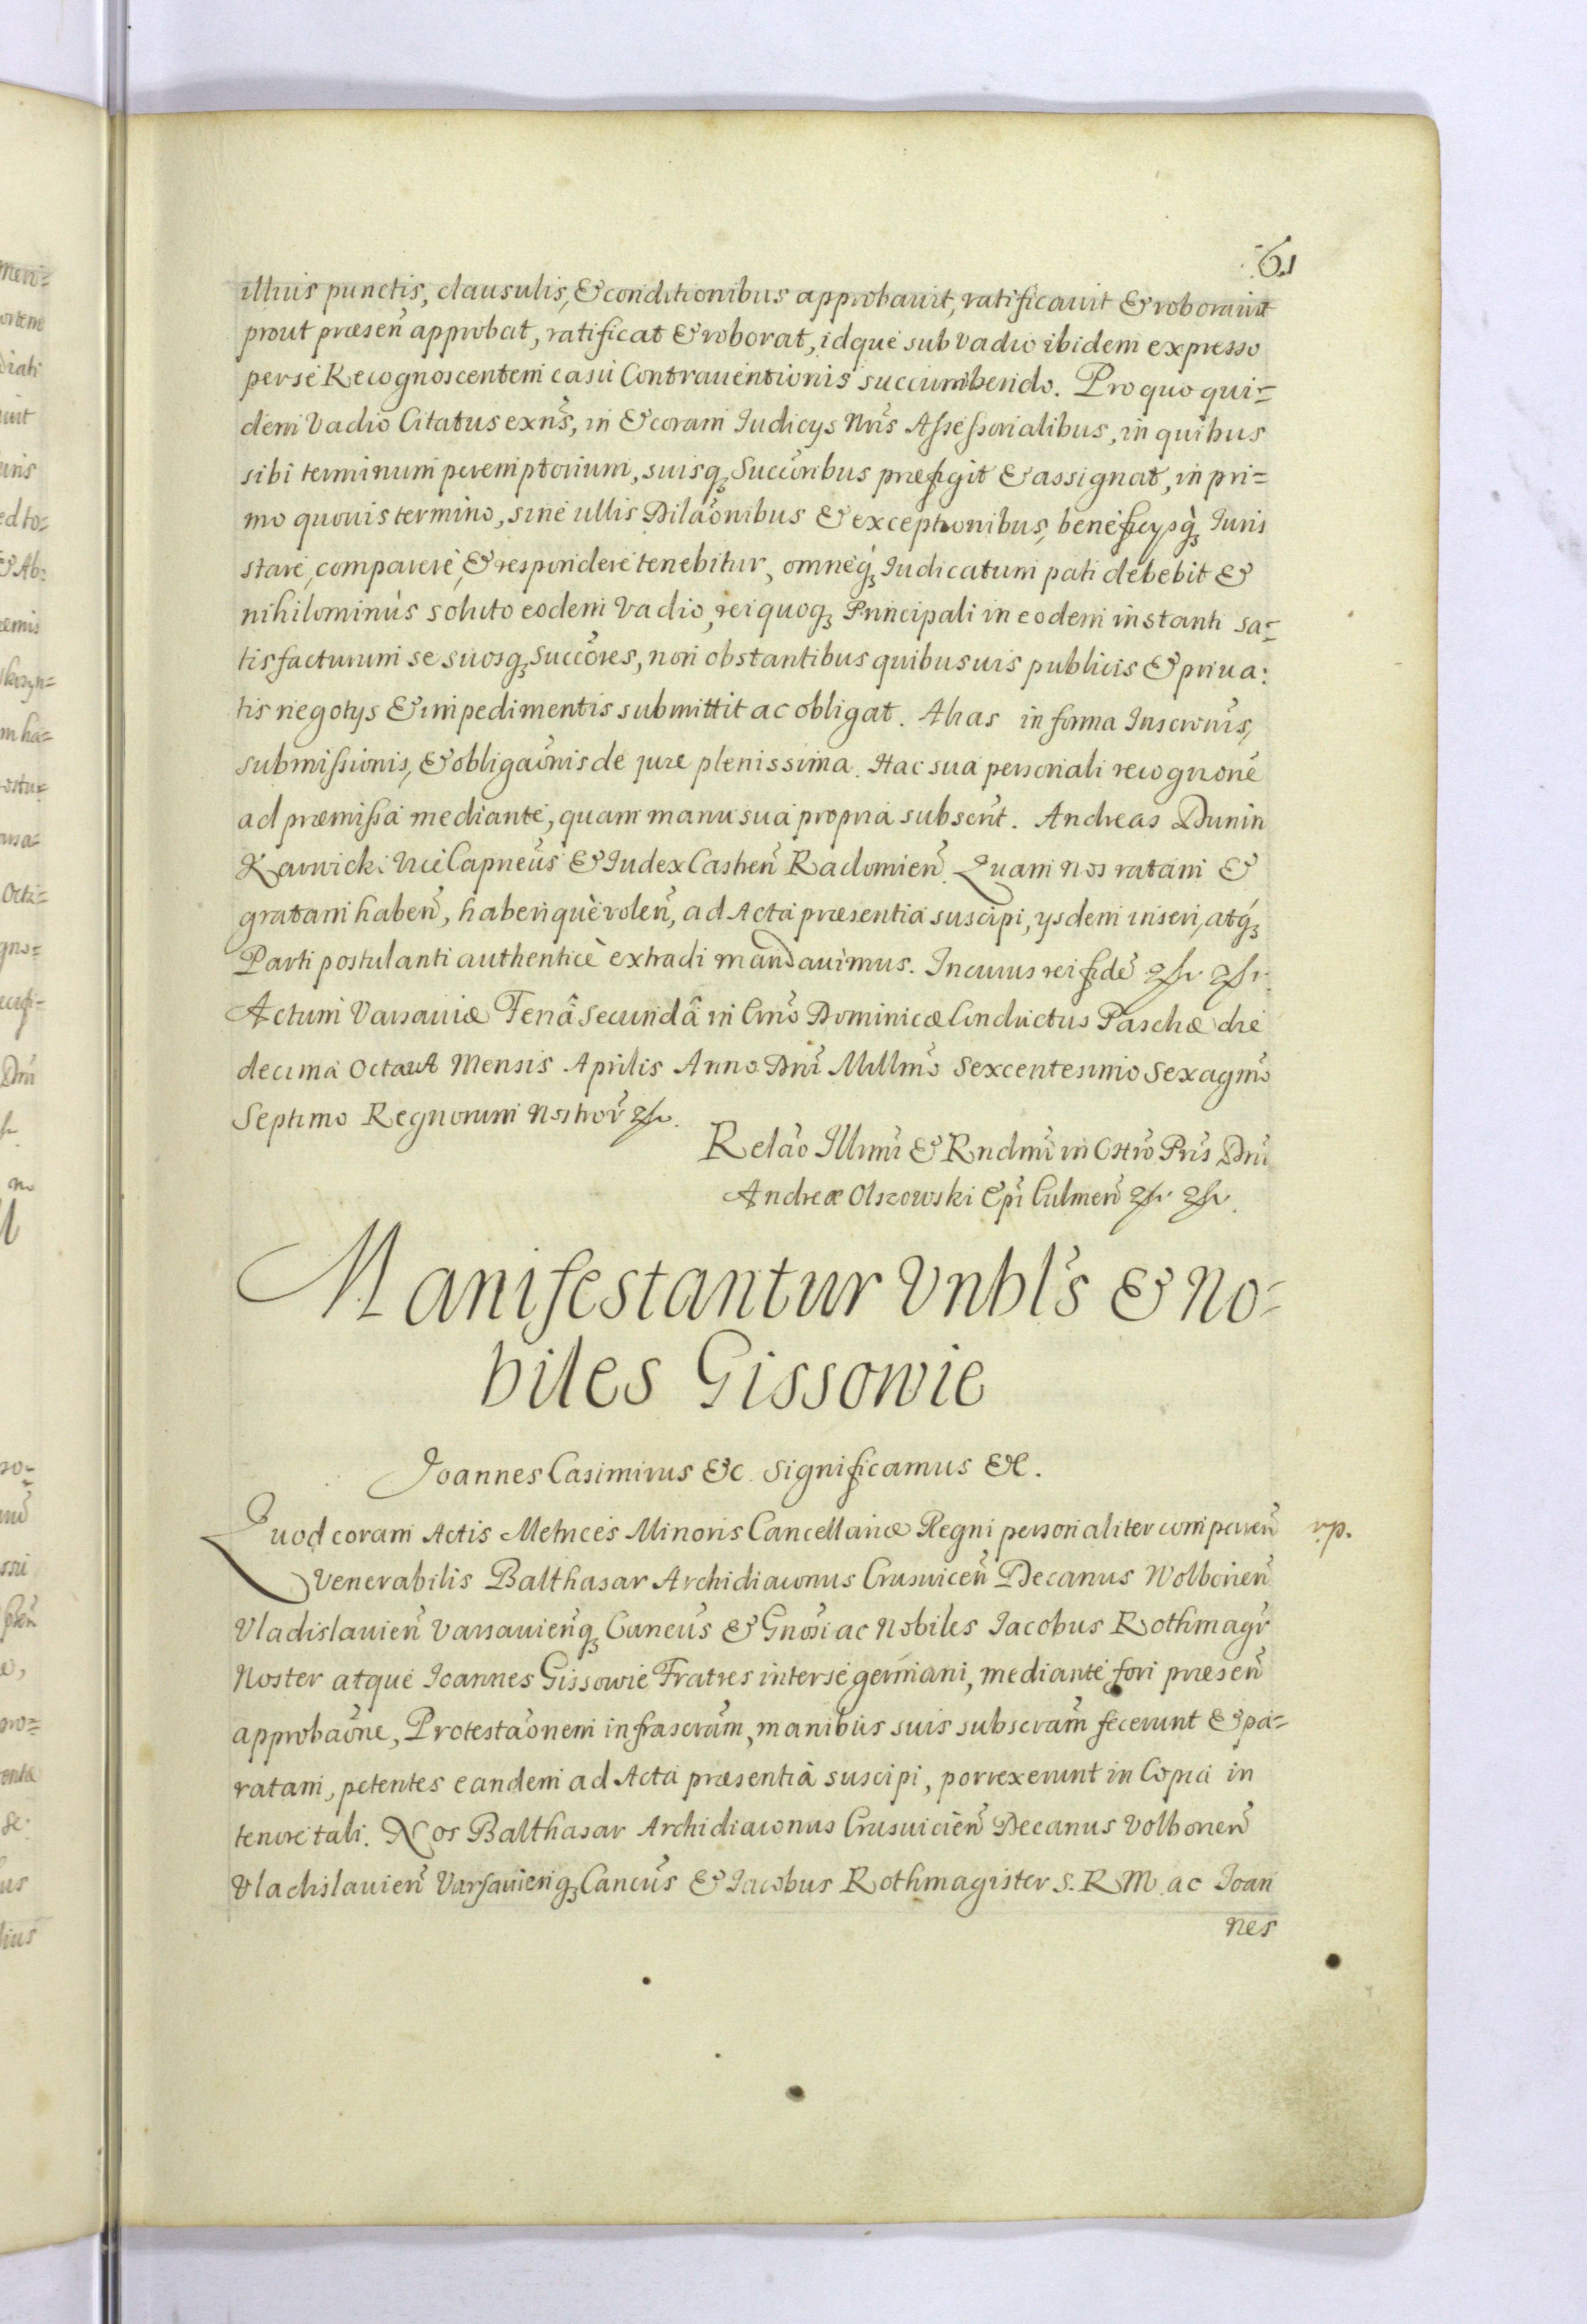 61
illius punctis, clausulis, & conditionibus approbauit, ratificauit & roborauit
prout præsen̄ approbat, ratificat & roborat, idque sub vadio ibidem expresso
per se Recognoscentem casu Contrauentionis succumbendo. Pro quo qui=
dem Vadio Citatus exn̄s, in & coram Iudicys Nr̄is Assessorialibus, in quibus
sibi terminum peremptorium, suisq₃ Succōribus præfigit & assignat, in pri=
mo quouis termino, sine ullis Dilāonibus & exceptionibus, beneficysq₃ Iuris
stare, comparere, & respondere tenebitur, omneq₃ Iudicatum pati debebit &
nihilominus soluto eodem Vadio, rei quoq₃ Principali in eodem instanti sa=
tisfacturum se suosq₃ Succōres, non obstantibus quibusuis publicis & priua:
tis negotys & impedimentis submittit ac obligat. Alias in forma Inscrōnis,
submissionis, & obligāonis de jure plenissima. Hac sua personali recognōne
ad præmissa mediante, quam manu sua propria subscrīt. Andreas Dunin
Karwicki Vice Capneūs & Iudex Castren̄ Radomien̄. Quam nos ratam &
gratam haben̄, haberique volen̄, ad Acta præsentia suscipi, ysdem inseri, atq₃
Parti postulanti authenticè extradi mandauimus. In cuius rei fidē
Actum Varsauiæ Feriâ Secundâ in Crn̄o Dominicæ Conductus Paschæ die
decima Octaua Mensis Aprilis Anno Dn̄i Millm̄o Sexcentesimo Sexagm̄o
Septimo Regnorum Nostror̄
Relāo Illmi & Rndmi in Chro Pris Dni
Andreæ Olszowski Epi Culmen̄
Manifestantur Vnbl's & No=
biles Gissowie
Joannes Casimirus &c. Significamus &c.
Quod coram Actis Metrices Minoris Cancellariæ Regni personaliter comparen̄
rp.
Venerabilis Balthasar Archidiaconus Crusuicen̄ Decanus Wolborien̄
Vladislauien̄ Varsauienq₃ Caneūs & Gnosi ac Nobiles Iacobus Rothmagr̄
Noster atque Ioannes Gissowie Fratres inter se germani, mediante fori præsen̄
approbāone, Protestāonem infrascrām, manibus suis subscrām fecerunt & pa=
ratam, petentes eandem ad Acta præsentia suscipi, porrexerunt in Copia in
tenore tali. Nos Balthasar Archidiaconus Crusuicien̄ Decanus Volboren̄
Vladislauien̄ Varsauienq₃ Caneūs & Iacobus Rothmagister S. R M. ac Ioan
nes